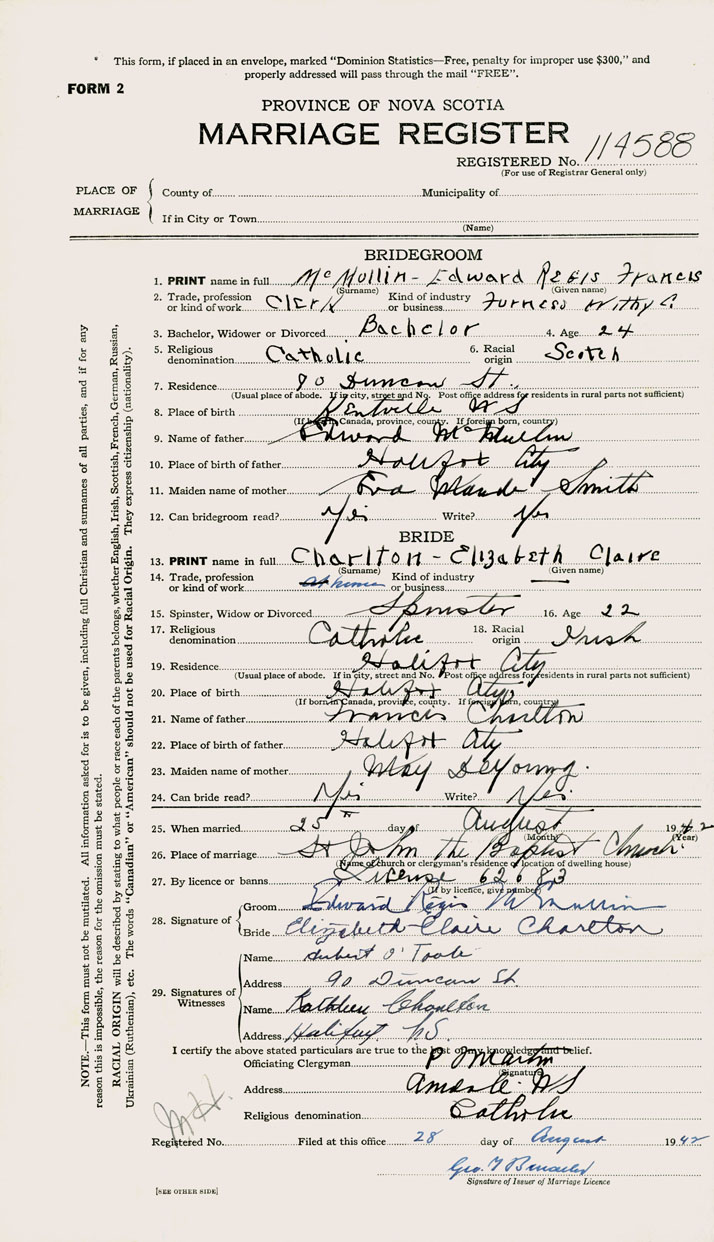 This form, if placed in an envelope, marked "Dominion Statistics—Free, penalty for improper use $300," and
properly addressed will pass through the mail "FREE".
FORM 2
PROVINCE OF NOVA SCOTIA
MARRIAGE REGISTER
REGISTERED No. 114588
(For use of Registrar General only)
PLACE OF MARRIAGE
County of Municipality of
If in City or Town
(Name)
BRIDEGROOM
1. PRINT name in full McMullin - Edward REGIS Francis
(Surname) (Given name)
2. Trade, profession or kind of work Clerk Kind of industry or business Furness Withy
3. Bachelor, Widower or Divorced Bachelor 4. Age 24
5. Religious denomination Catholic 6. Racial origin Scotch
7. Residence 90 Duncan St.
(Usual place of abode. If in city, street and No. Post office address for residents in rural parts not sufficient)
8. Place of birth Kentville NS
(If born in Canada, province, county. If foreign born, country)
9. Name of father Edward McMullin
10. Place of birth of father Halifax City
11. Maiden name of mother Eva Maude Smith
12. Can bridegroom read? Yes Write? Yes
BRIDE
13. PRINT name in full Charlton - Elizabeth Claire
(Surname) (Given name)
14. Trade, profession or kind of work At home Kind of industry or business —
15. Spinster, Widow or Divorced Spinster 16. Age 22
17. Religious denomination Catholic 18. Racial origin Irish
19. Residence Halifax City
(Usual place of abode. If in city, street and No. Post office address for residents in rural parts not sufficient)
20. Place of birth Halifax City
(If born in Canada, province, county. If foreign born, country)
21. Name of father Francis Charlton
22. Place of birth of father Halifax City
23. Maiden name of mother May DeYoung.
24. Can bride read? Yes Write? Yes.
25. When married 25th day of August 1942
(Month) (Year)
26. Place of marriage St John the Baptist Church
(Name of church or clergyman's residence or location of dwelling house)
27. By licence or banns License 62683
(If by licence, give number)
28. Signature of
Groom Edward Regis McMullin
Bride Elizabeth Claire Charlton
29. Signatures of Witnesses
Name Hubert O'Toole
Address 90 Duncan St.
Name Kathleen Charlton
Address Halifax N.S.
I certify the above stated particulars are true to the best of my knowledge and belief.
Officiating Clergyman P J Martin
(Signature)
Address Armdale NS
Religious denomination Catholic
Registered No. Filed at this office 28 day of August 1942
Geo. 
Signature of Issuer of Marriage Licence
[SEE OTHER SIDE]
NOTE.—This form must not be mutilated. All information asked for is to be given, including full Christian and surnames of all parties, and if for any
reason this is impossible, the reason for the omission must be stated.
RACIAL ORIGIN will be described by stating to what people or race each of the parents belongs, whether English, Irish, Scottish, French, German, Russian,
Ukrainian (Ruthenian), etc. The words "Canadian" or "American" should not be used for Racial Origin. They express citizenship (nationality).